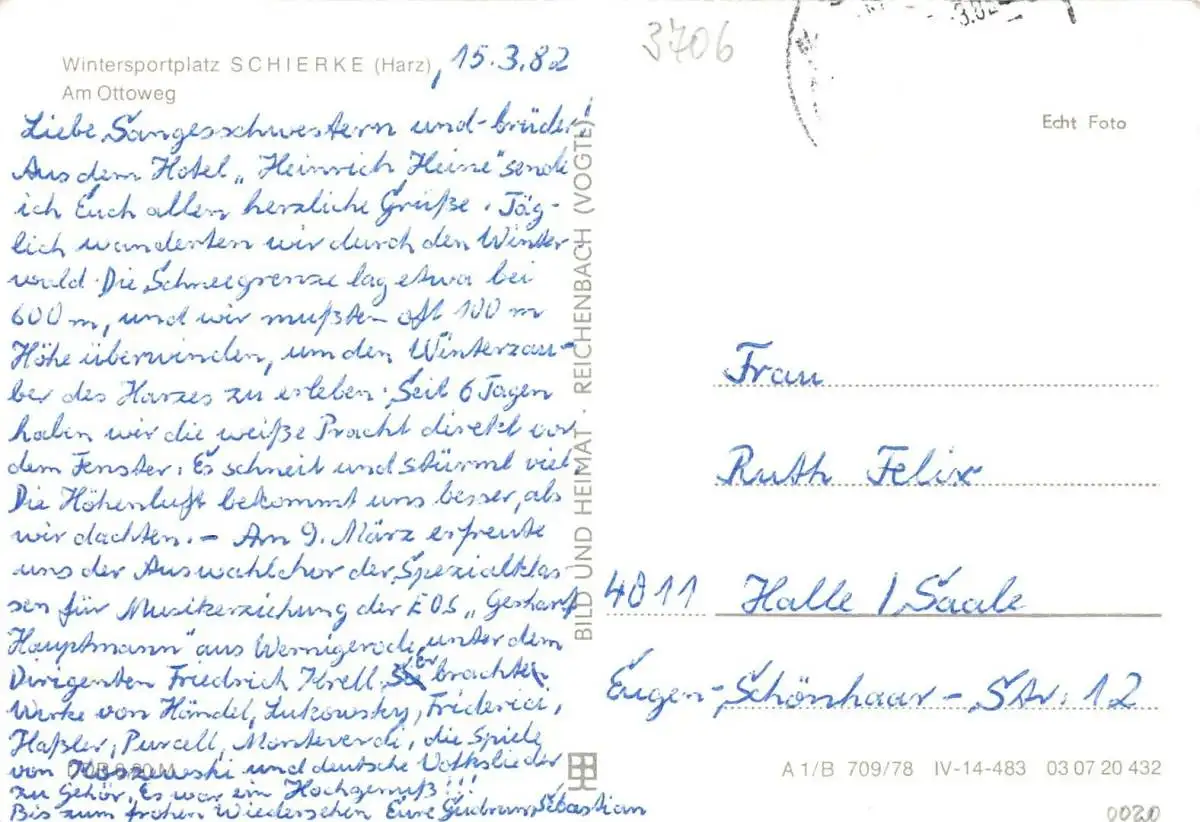 3706
3.82
Wintersportplatz SCHIERKE (Harz), 15.3.82
Am Ottoweg
Echt Foto
Liebe Sangesschwestern und -brüder!
Aus dem Hotel „Heinrich Heine" sende
ich Euch allen herzliche Grüße. Täg-
lich wanderten wir durch den Winter
wald. Die Schneegrenze lag etwa bei
600 m, und wir mußten oft 100 m
Höhe überwinden, um den Winterzau-
ber des Harzes zu erleben. Seit 6 Tagen
haben wir die weiße Pracht direkt vor
dem Fenster. Es schneit und stürmt viel.
Die Höhenluft bekommt uns besser, als
wir dachten. – Am 9. März erfreute
uns der Auswahlchor der Spezialklas
sen für Musikerziehung der EOS „Gerhart
Hauptmann" aus Wernigerode unter dem
Dirigenten Friedrich Krell. Er brachte
Werke von Händel, Lukowsky, Friderici,
Haßler, Purcell, Monteverdi, die Spiele
von Koszewski und deutsche Volkslieder
zu Gehör. Es war ein Hochgenuß!!!
Bis zum frohen Wiedersehen Eure Gudrun Sebastian
BILD UND HEIMAT · REICHENBACH (VOGTL)
Frau
Ruth Felix
4011 Halle / Saale
Eugen-Schönhaar-Str. 12
A 1/B 709/78 IV-14-483 03 07 20 432
0020